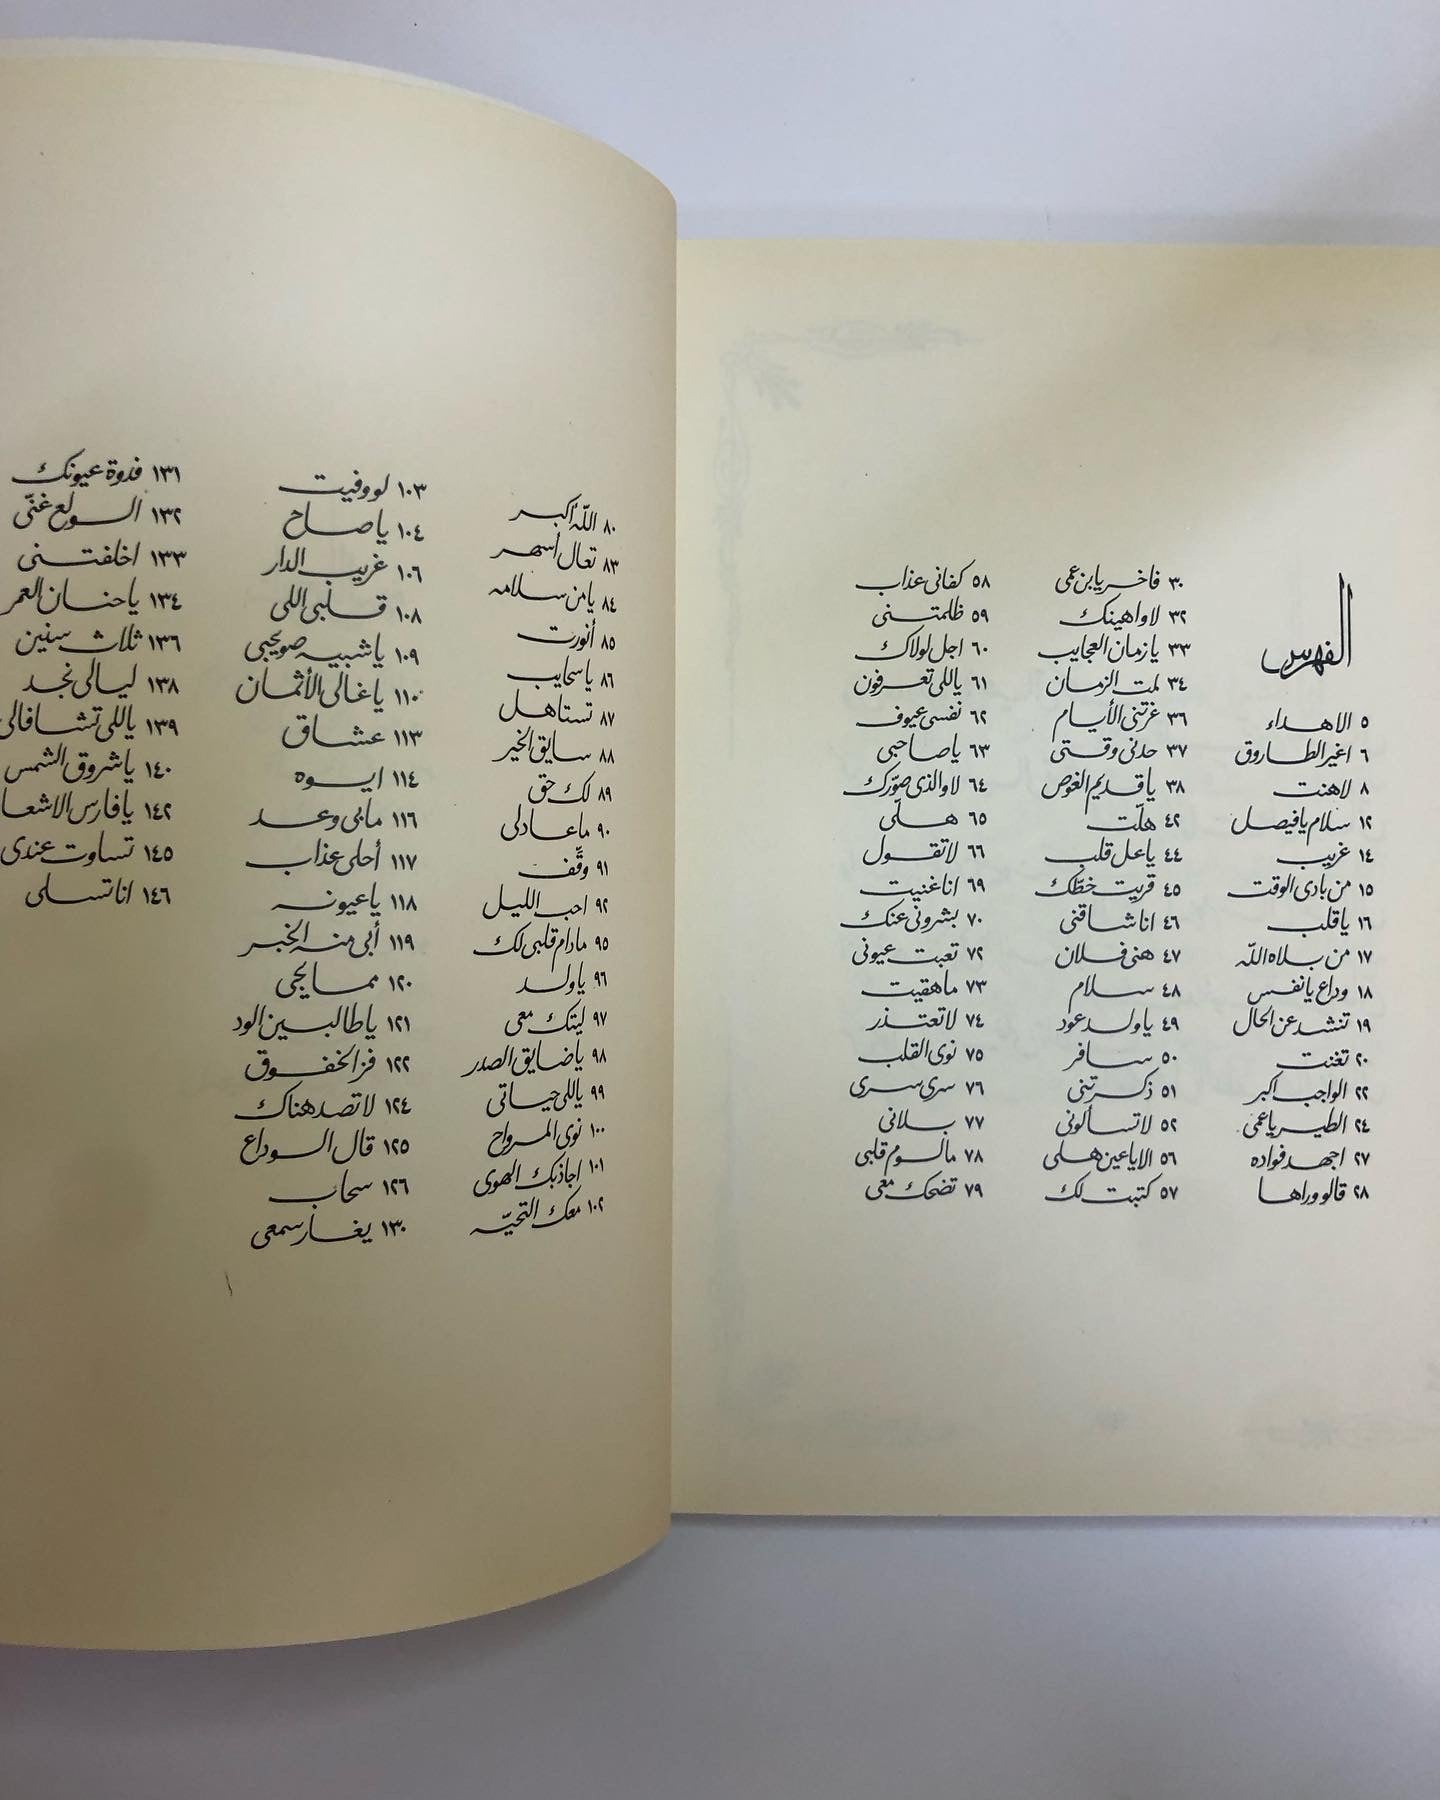 الفهرس
٥ الاهداء
٦ اغير الطاروق
٨ لاهنت
١٢ سلام يا فيصل
١٤ غريب
١٥ من بادى الوقت
١٦ يا قلب
١٧ من بلاه الله
١٨ وداع يا نفس
١٩ تنشد عن الحال
٢٠ تغنت
٢٢ الواجب اكبر
٢٤ الطير يا عمى
٢٧ اجهد فواده
٢٨ قالو وراها
٣٠ فاخر يا بن عمى
٣٢ لا واهينك
٣٣ يا زمان العجايب
٣٤ لمت الزمان
٣٦ غرتنى الأيام
٣٧ حدنى وقتى
٣٨ يا قديم الغوص
٤٢ هلّت
٤٤ يا عل قلب
٤٥ قريت خطّك
٤٦ انا شاقنى
٤٧ هنى فلان
٤٨ سلام
٤٩ يا ولد عود
٥٠ سافر
٥١ ذكرتنى
٥٢ لا تسألونى
٥٦ الا يا عين هلى
٥٧ كتبت لك
٥٨ كفانى عذاب
٥٩ ظلمتنى
٦٠ اجل لولاك
٦١ ياللى تعرفون
٦٢ نفسى عيوف
٦٣ يا صاحبى
٦٤ لا والذى صوّرك
٦٥ هلّى
٦٦ لا تقول
٦٩ انا غنيت
٧٠ بشرونى عنك
٧٢ تعبت عيونى
٧٣ ما هقيت
٧٤ لا تعتذر
٧٥ نوى القلب
٧٦ سرى سرى
٧٧ بلانى
٧٨ مالوم قلبى
٧٩ تضحك معى
٨٠ الله أكبر
٨٣ تعال أسهر
٨٤ يا من سلامه
٨٥ أنورت
٨٦ يا سحايب
٨٧ تستاهل
٨٨ سايق الخير
٨٩ لك حق
٩٠ ما عاد لى
٩١ وقّف
٩٢ احب الليل
٩٥ مادام قلبى لك
٩٦ يا ولد
٩٧ ليتك معى
٩٨ يا ضايق الصدر
٩٩ ياللى حياتى
١٠٠ نوى المرواح
١٠١ اجاذبك الهوى
١٠٢ معك التحيّه
١٠٣ لو وفيت
١٠٤ يا صاح
١٠٦ غريب الدار
١٠٨ قلبى اللى
١٠٩ يا شبيه صويحبى
١١٠ يا غالى الأثمان
١١٣ عشاق
١١٤ ايوه
١١٦ مابى وعد
١١٧ أحلى عذاب
١١٨ يا عيونه
١١٩ أبى منه الخبر
١٢٠ مما يجى
١٢١ يا طالبين الود
١٢٢ فز الخفوق
١٢٤ لا تصد هناك
١٢٥ قال الوداع
١٢٦ سحاب
١٣٠ يغار سمعى
١٣١ فدوة عيونك
١٣٢ الولع غنّى
١٣٣ اخلفتنى
١٣٤ يا حنان العمر
١٣٦ ثلاث سنين
١٣٨ ليالى نجد
١٣٩ ياللى تشافالى
١٤٠ يا شروق الشمس
١٤٢ يا فارس الاشعا
١٤٥ تساوت عندى
١٤٦ انا تسلى